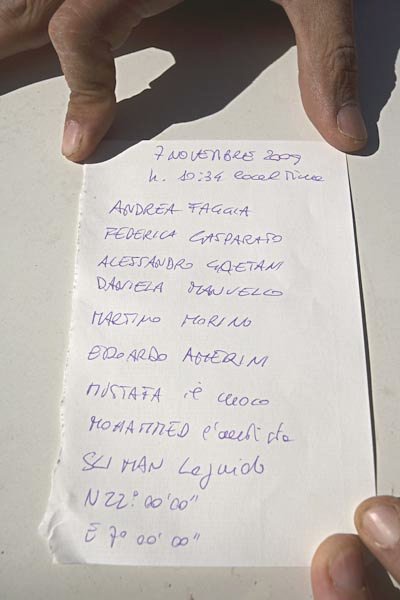 7 NOVEMBRE 2009
h. 10:34 local time
ANDREA FAGGIA
FEDERICA GASPARATO
ALESSANDRO GAETANI
DANIELA MANUELLO
MARTINO MORINO
EDOARDO AMERINI
MUSTAFA il cuoco
MOHAMMED l'autista
SLIMAN la guida
N 22° 00' 00"
E 7° 00' 00"